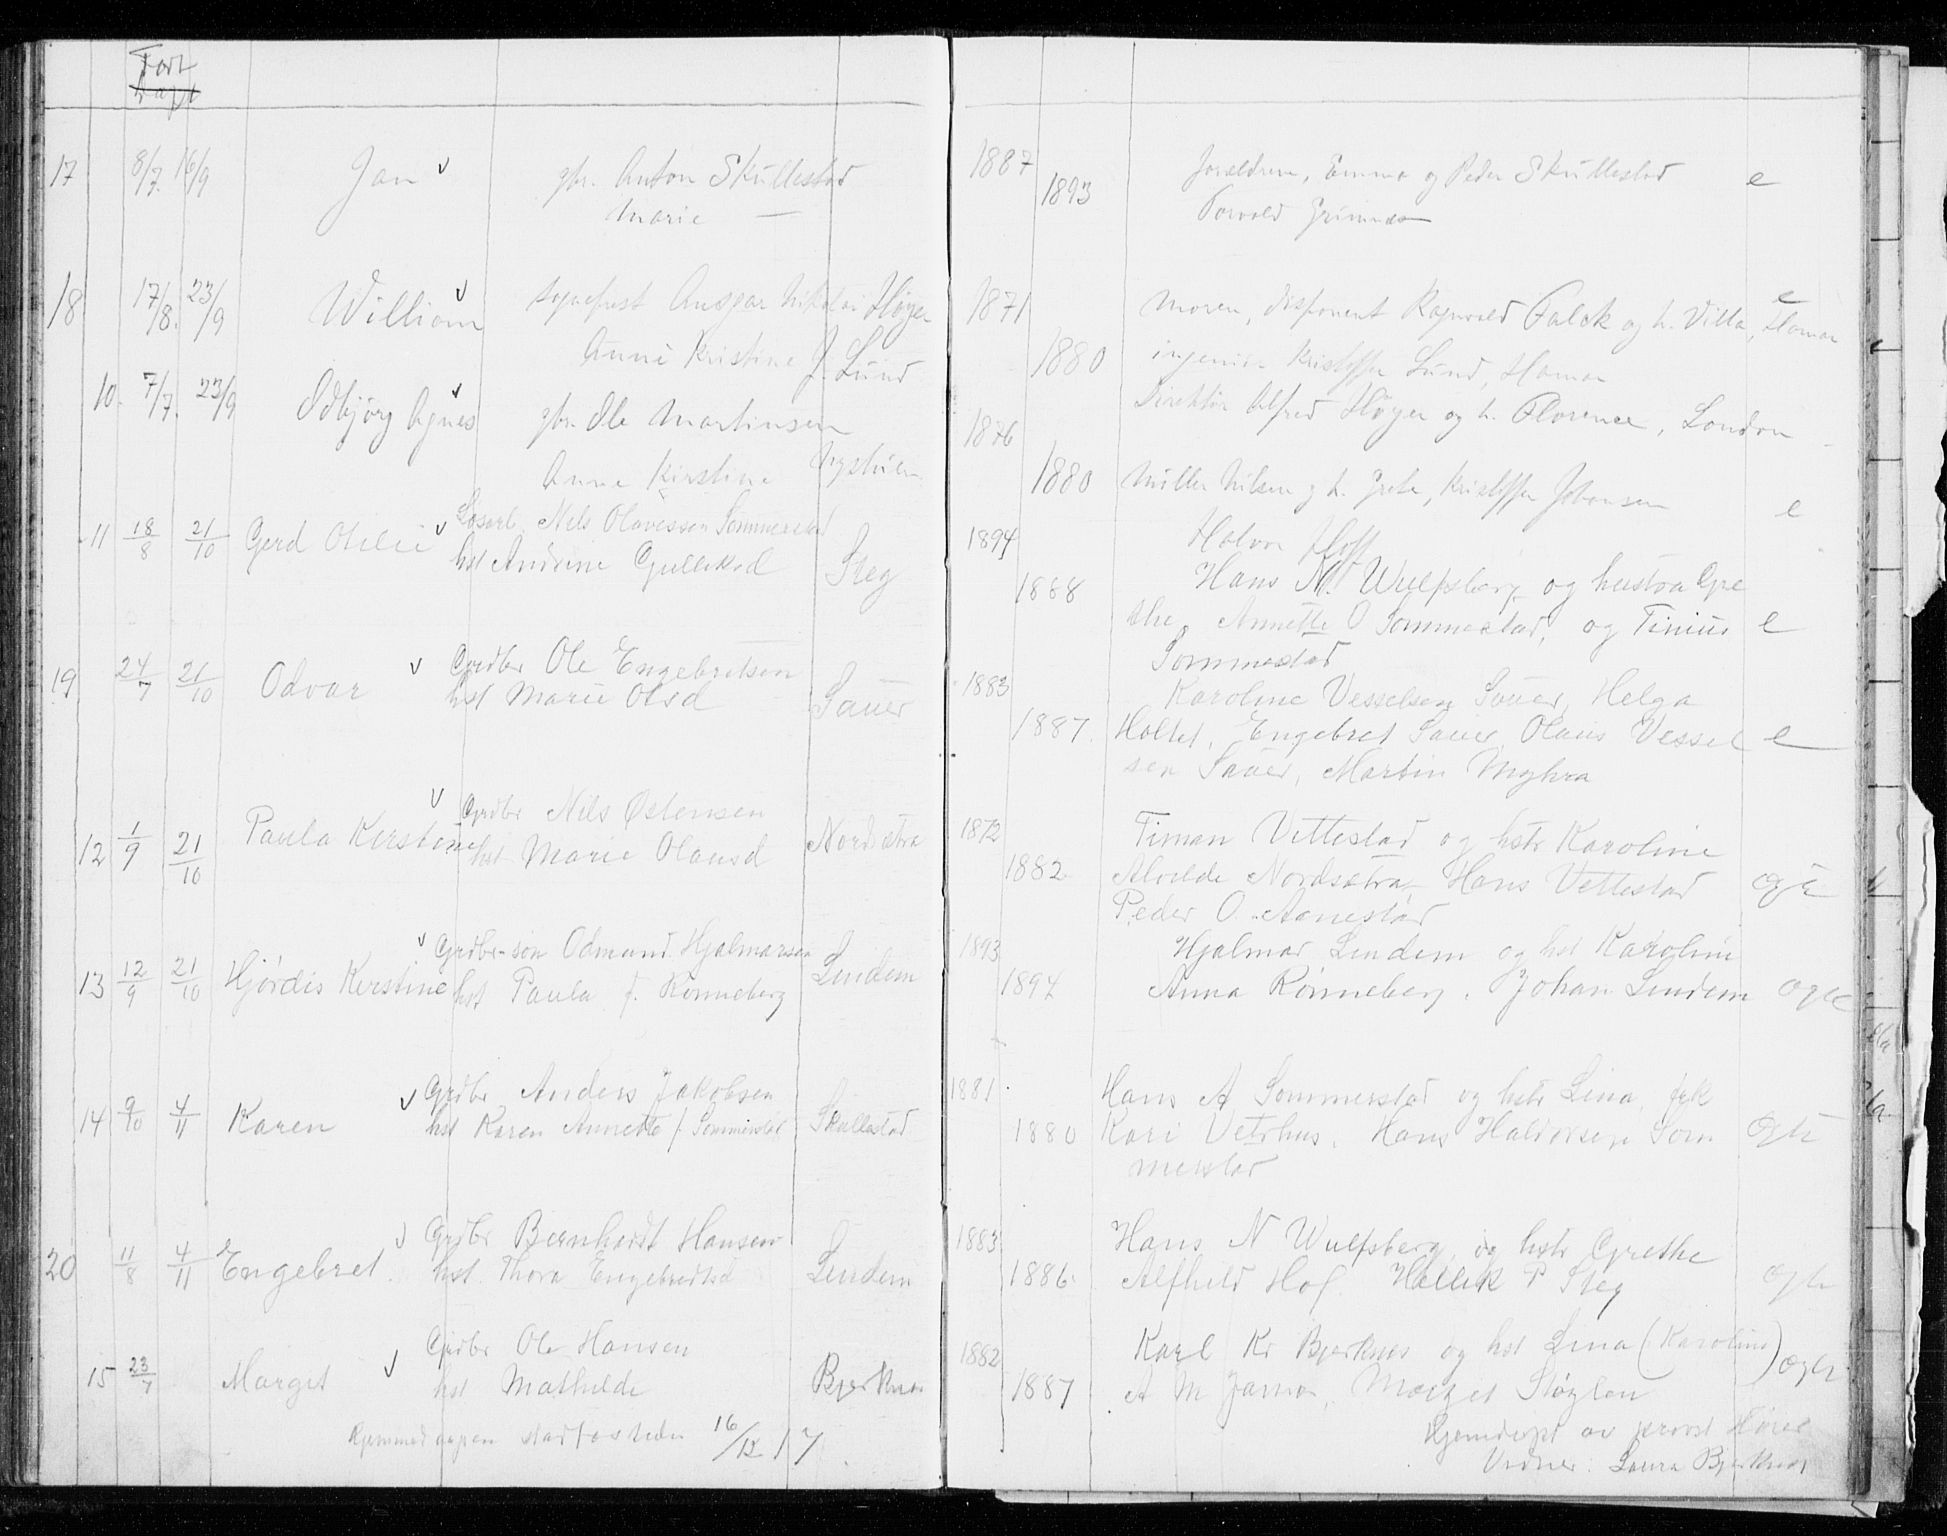 Født
Døpt
17 8/7. 16/9 Jan v gbr. Anton Skullestad
Marie —
18 17/8. 23/9 William v sogneprest Ansgar Nikolai Høyer
Anne Kristine J. Lund
10. 7/7. 23/9 Odbjørg Agnes v gbr. Ole Martinsen
Anne Kirstine
11 18/8 21/10 Gerd Otilie v Løsarb. Nils Olavessen Sommerstad
hst Andrine Gulliksd Steg
19 24/7 21/10 Odvar v Grdbr Ole Engebretsen
hst Marie Olsd Sauer
12 1/9 21/10 Paula Kerstine v Grdbr Nils Østensen
hst Marie Olausd Nordsætra
13 12/9 21/10 Hjørdis Kerstine v Grdbr-søn Odmund Hjalmarsen
hst Paula f. Rønneberg Lindem
14 9/10 4/11 Karen v Grdbr Anders Jakobsen
hst Karen Annette f. Sommerstad Skullestad
20 11/8 4/11 Engebret v Grdbr Bernhardt Hansen
hst. Thora Engebretsd Lindem
15 23/7 Margit v Grdbr Ole Hansen
hst Mathilde Bjerknes
Hjemmedaapen stadfæstedes 16/12 17
1887 Forældrene, Emma og Peder Skullestad e
1893 Torvald Grimnes
1871 Moren, disponent Ragnvald Falck og h. Villa, Hamar e
1880 ingeniør Kristoffer Lund, Hamar
Direktør Alfred Høyer og h. Florence, London
1876
1880 Müller Nilsen og h. Grete, Kristoffer Johansen e
1894 Halvor Hoff
1888 Hans N. Wulfsberg og hustra Gre
the, Annette O Sommestad, og Tinius e
Sommestad
1883 Karoline Vesselsen Sauer, Helga
1887. Holtet, Engebret Sauer, Olaus Vessel e
sen Sauer, Martin Myhra
1872 Timan Vettestad og hstr Karoline
1882 Alvilde Nordsætra, Hans Vettestad Ogte
Peder O. Aanestad
1893 Hjalmar Lindem og hst Karoline
1894 Anna Rønneberg, Johan Lindem Ogte
1881 Hans A Sommerstad og hstr Lina, frk
1880 Kari Vetrhus, Hans Halvorsen Som Ogte
merstad
1883 Hans N Wulfsberg, og hstr Grethe
1886. Alfhild Hof Hallik P Steg Ogte
1882 Karl Kr Bjerknes og hst Lina (Karoline) Ogte
1887 A M Jamar, Margit Støylen
Hjemdøpt av provst Høyer
Vidner: Laura Bjerknes